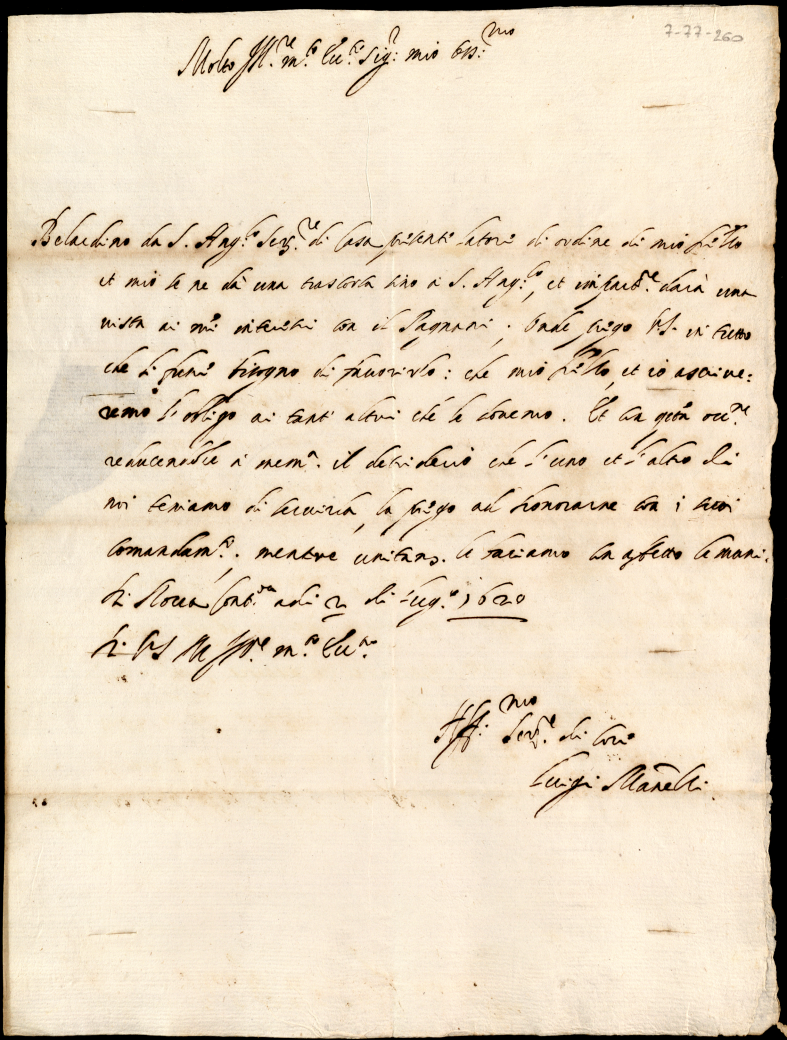 7-77-260
Molto Ill.re m.to Ecc.te Sig.r mio oss.mo
Belardino da S. Ang.lo Ser.re di Casa, presenti latore di ordine di mio fr̃ello
et mio se ne dà una trascorsa sino a S. Ang.lo, et darà una
vista ai m.i interessi con il Pagnani; onde prego V.S. in tutto
che li fusse bisogno di favorirlo: che mio fr̃ello, et io ascrive:
remo l'obligo ai tanti altri che le dovemo. Et con q̃sta occ.ne
reducendole a mem.a il desiderio che l'uno et l'altro di
noi teniamo di servirla, la prego ad honorarne con i suoi
comandam.ti, mentre le baciamo con affetto le mani.
di Rocca adi 2 di Lug.o 1620
Di V.S. M Ill.re m.to Ecc.te
Aff.mo Ser.re di core
Luigi Mañelli